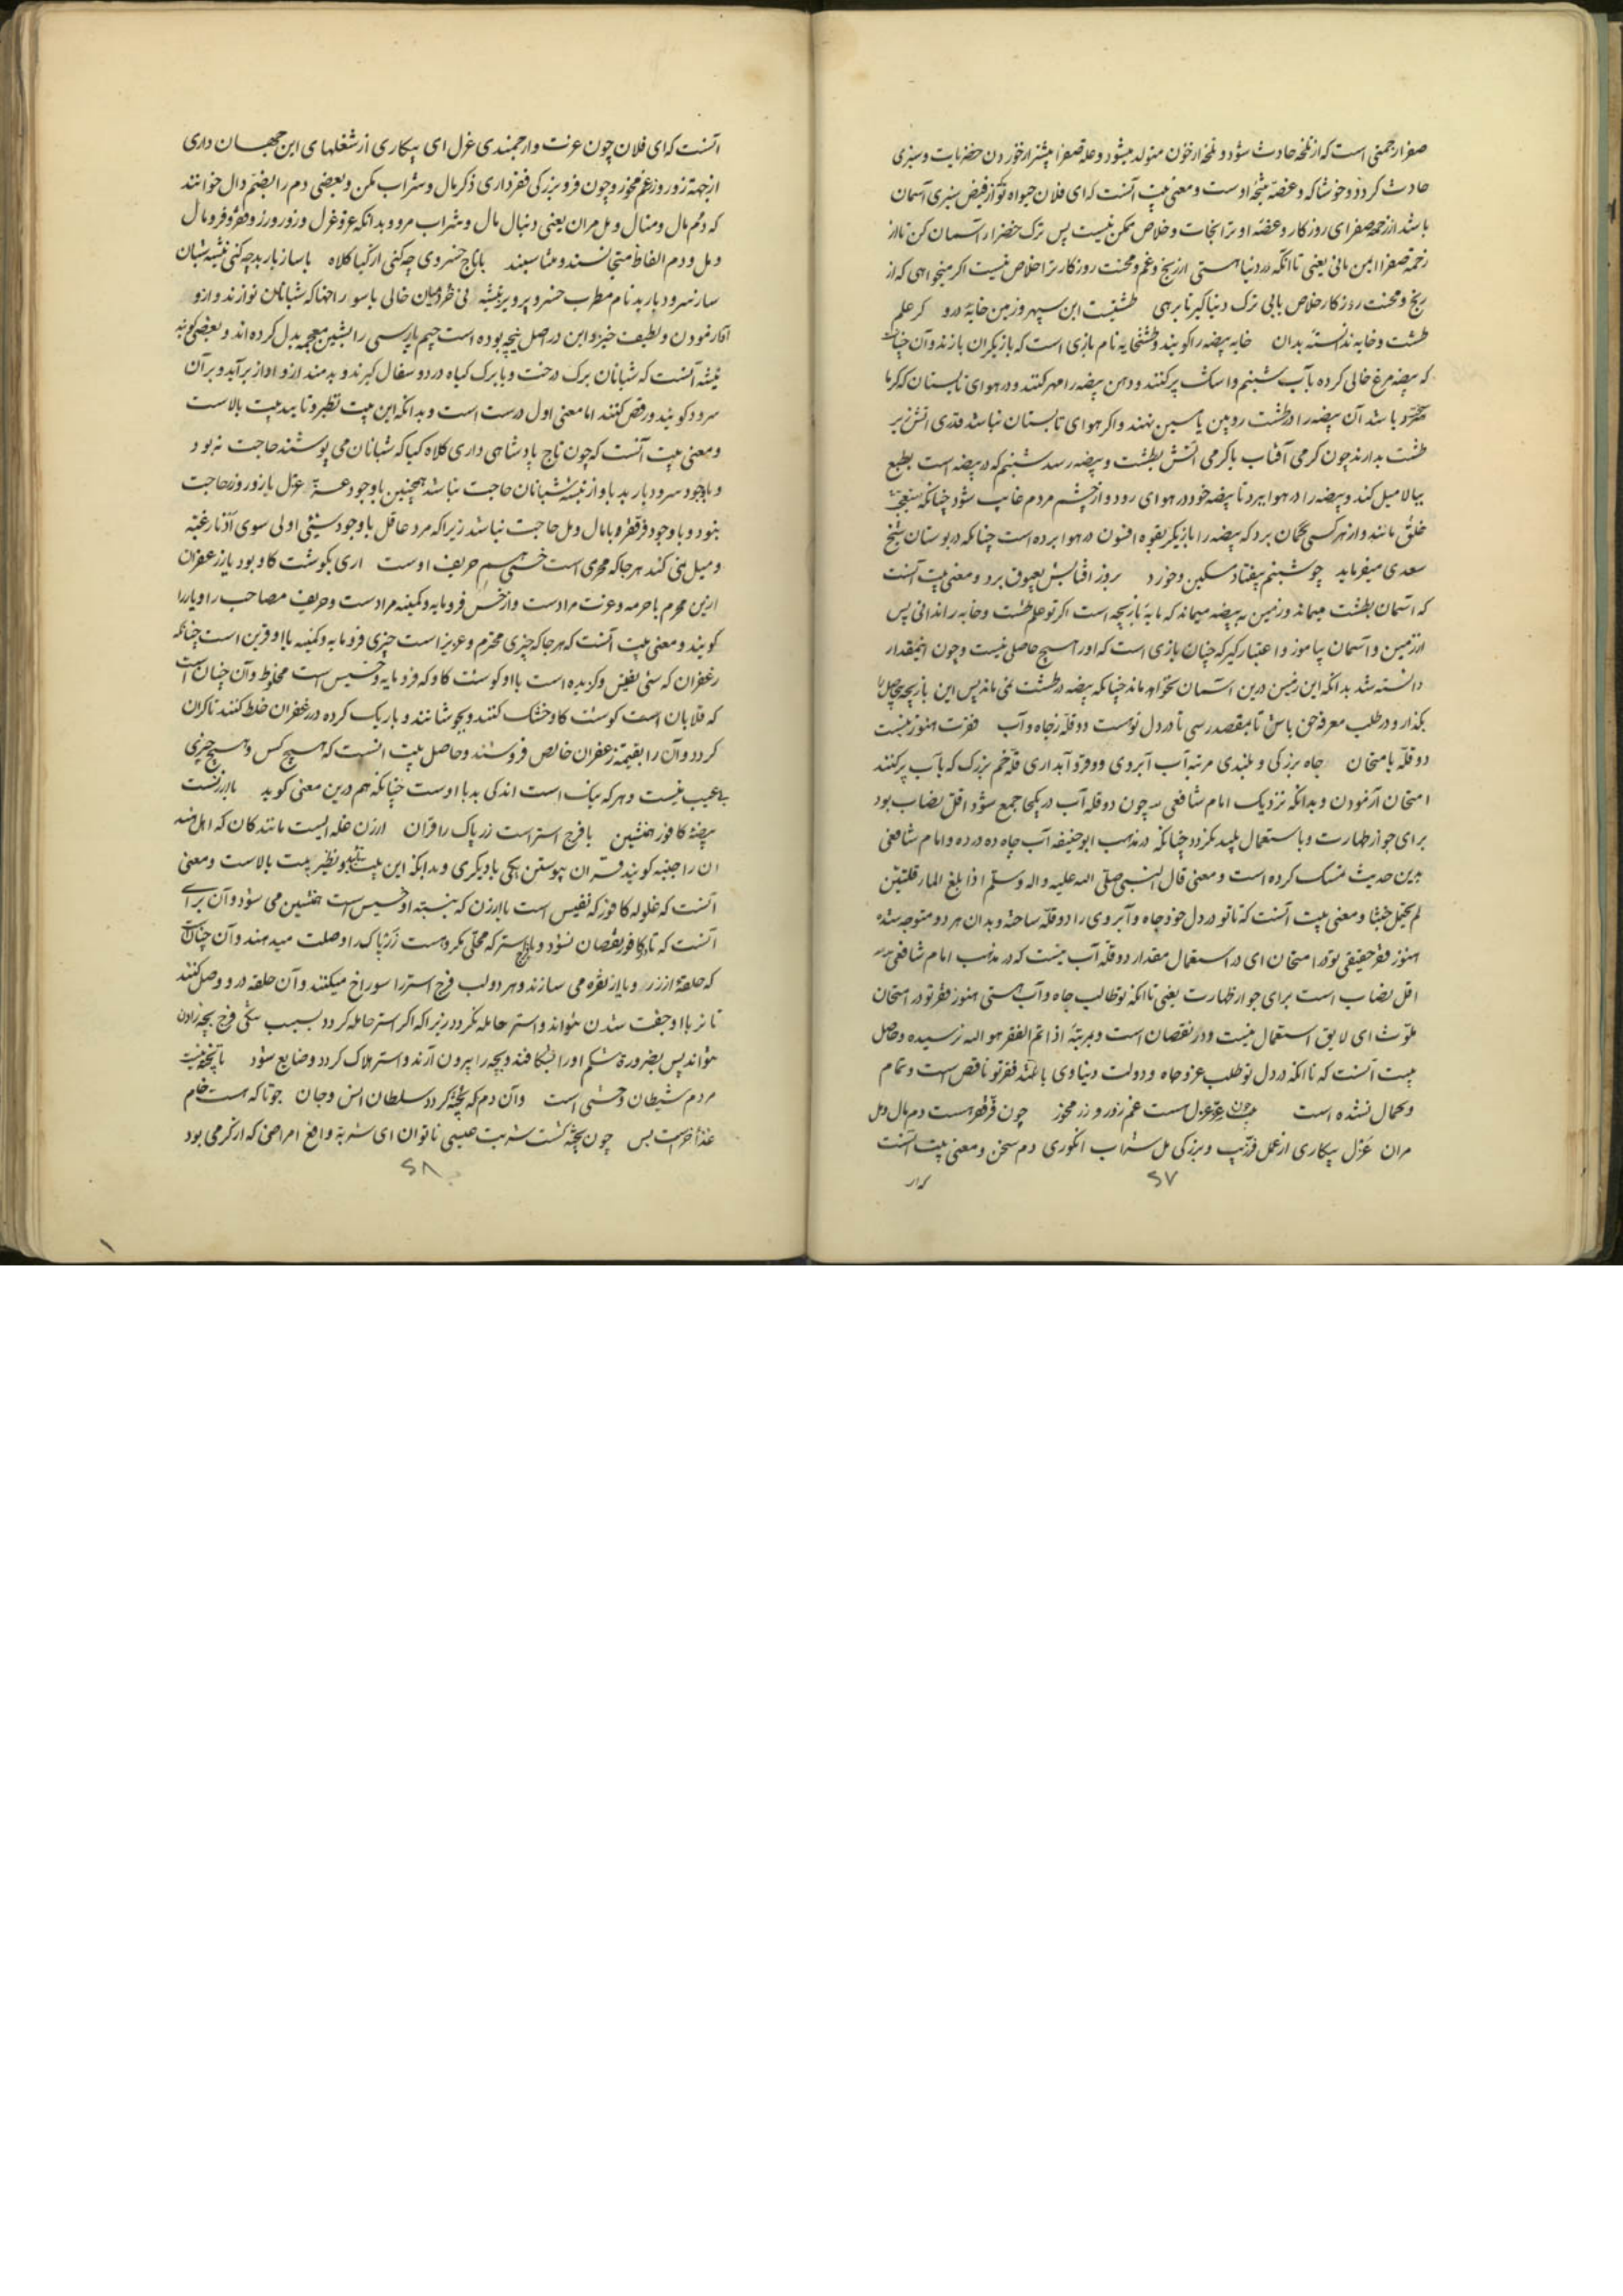 صفرا رحمتی است که از تلخه حادث شود و تلخه از خون متولد میشود و علة صفرا بیشتر از خوردن خضریات و سبزی
حادث کردد و خوشا که و غصه نتیجۀ اوست و معنی بیت آنست که ای فلان چواه تو کز فیض سبزی آسمان
باشد از زخمۀ صفرای روزکار و غصۀ او ترا نجات و خلاص ممکن نیست پس ترک خضراء آسمان کن تا از
زخمۀ صفرا ایمن مانی یعنی تا انکه در دنیا هستی از رنج و غم و محنت روزکار ترا خلاص نیست اکر میخواهی که از
رنج و محنت روزکار خلاص یابی ترک دنیا کیر تا برهی طشتیست این سپهر و زمین خایۀ درو کر علم
طشت و خایه ندانستۀ بدان خایه بیضه را کویند و طشتخایه نام بازی است که بازیکران بازند و آن چنانست
که بیضه مرغ خالی کرده بآب شبنم و اساک پر کنند و دهن بیضه را مهر کنند و در هوای تابستان که کرما
باشد آن بیضه را در طشت رویین یا سیمین نهند و اکر هوای تابستان نباشد قدری آتش زیر
طشت بدارند چون کرمی آفتاب یا کرمی آتش بطشت و بیضه رسد شبنم که در بیضه است بطبع
ببالا میل کند و بیضه را در هوا ببرد تا بیضه خود در هوای رود و از چشم مردم غایب شود چنانکه
خلق مانند و از هر کسی کمان برد که بیضه را بازیکر بقوه افسون در هوا برده است چنانکه در بوستان شیخ
سعدی میفرماید چو شبنم بیفتاد مسکین و خورد بروز آفتابش بعیوق برد و معنی بیت آنست
که آسمان بطشت میماند و زمین به بیضه میماند که مایۀ بازیچه است اکر تو علم طشت و خایه را ندانی پس
از زمین و آسمان بیاموز و اعتبار کیر که چنان بازی است که اورا هیچ حاصلی نیست و چون اینقدار
دانسته شد بدانکه این زمین درین آسمان نخواهد ماند چنانکه بیضه در طشت نمی ماند پس این بازیچه بیحاصل را
بکذار و در طلب معرفة حق باش تا بمقصد رسی تا در دل توست دو قلّه ز جاه و آب فقرت هنوز نیست
دو قلّه بامتحان جاه بزرکی و بلندی مرتبه آب آبروی و وقر و آبداری قلّه خم بزرک که بآب پر کنند
امتحان آزمودن و بدانکه نزدیک امام شافعی چون دو قله آب در یکجا جمع شود اقل نصاب بود
برای جواز طهارت و باستعمال پلید نکردد چنانکه در مذهب ابو حنیفه آب چاه ده در ده و امام شافعی
بدین حدیث تمسک کرده است و معنی قال النبی صلی الله علیه و اله و سلم اذا بلغ الماء قلتین
لم یحمل خبثا و معنی بیت آنست که تا تو در دل خود جاه و آبروی را دو قلّه ساخته و بدان هر دو متوجه شدۀ
هنوز فقر حقیقی تو در امتحان ای در استعمال مقدار دو قلّه آب نیست که در مذهب امام شافعی
اقل نصاب است برای جواز طهارت یعنی تا انکه تو طالب جاه و آب هستی هنوز فقر تو در امتحان
ملوث ای لایق استعمال نیست و در نقصان است و بمرتبۀ اذا تم الفقر هو الله نرسیده و حاصل
بیت آنست که تا انکه در دل تو طلب عز و جاه و دولت دنیاوی باشد فقر تو ناقص است و تمام
و کمال نشده است چون عزّ عزل هست غم زور و زر مخور چون فرّ فقر هست دم مال و مل
مران عزل بیکاری از عمل فرّ زیب و بزرکی مل شراب انکوری دم سخن و معنی بیت آنست
۲۷
آنست که ای فلان چون عزت و ارجمندی عزل ای بیکاری از شغلهای این جهان داری
از جهة زور و زر غم مخور و چون فر و بزرکی فقر داری ذکر مال و شراب مکن و بعضی دم را بضم دال خوانند
که دم مال و منال و مل مران یعنی دنبال مال و شراب مرو و بدانکه عز و عزل و زور و زر و فقر و فر و مال
و مل و دم الفاظ متجانسند و متناسبند باتاج خسروی چه کنی از کیا کلاه باساز باربد چه کنی نیشه شبان
ساز سرود باربد نام مطرب خسرو پرویز نیشه نی خالی باسوراخها که شبانان نوازند و ازو
آواز موزون و لطیف خیزد و این در اصل نیچه بوده است چیم پارسی را بشین معجمه بدل کرده اند و بعضی کویند
نیشه آنست که شبانان برک درخت و یا برک کیاه در دو سفال کیرند و بدمند ازو اواز برآید و بر آن
سرود کویند و رقص کنند اما معنی اول درست است و بدانکه این بیت نظیر و تایید بیت بالاست
و معنی بیت آنست که چون تاج پادشاهی داری کلاه کیا که شبانان می پوشند حاجت نبود
و باوجود سرود باربد باواز نیشه شبانان حاجت نباشد همچنین باوجود عزّ عزل بازور و زر حاجت
نبود و باوجود فرّ فقر و بامال و مل حاجت نباشد زیرا که مرد عاقل باوجود شیئی اولی سوی ادنا رغبة
و میل نمی کند هر جا که محرمی است خسی هم حریف اوست اری بکوشت کاو بود یار زعفران
ازین محرم باحرمه و عزت مرادست و از خس فرومایه و کمینه مرادست و حریف مصاحب را و یار را
کویند و معنی بیت آنست که هر جا که چیزی محترم و عزیز است چیزی فرومایه و کمینه با او قرین است چنانکه
زعفران که شی نفیس و کزیده است با او کوشت کاو که فرومایه و خسیس است مخلوط و آن چنانست
که قلابان است کوشت کاو خشک کنند و بجوشانند و باریک کرده در زعفران خلط کنند تا کران
کردد و آن را بقیمة زعفران خالص فروشند و حاصل بیت انست که هیچ کس و هیچ چیزی
بی عیب نیست و هر که نیک است اندکی بد با اوست چنانکه هم درین معنی کوید با ارزنست
بیضۀ کافور همنشین با فرج استر است زر پاک را قران ارزن غله ایست مانند کان که اهل هند
ان را چینه کویند قران پیوستن یکی بادیکری و بدانکه این بیت نظیر بیت بالاست و معنی
آنست که غلوله کافور که نفیس است با ارزن که بنسبته او خسیس است همنشین می شود و آن برای
آنست که تا کافور نقصان نشود و بفرج استر که محلی مکروهست زر پاک را وصلت میدهند و آن چنانست
که حلقۀ از زر و یا از نقره می سازند و هر دو لب فرج استر را سوراخ میکنند و آن حلقه درو وصل کنند
تا نر با او جفت شدن نتواند و استر حامله نکردد زیرا که اکر استر حامله کردد بسبب تنکی فرج بچه زادن
نتواند پس بضرورة شکم اورا بشکافند و بچه را بیرون آرند و استر هلاک کردد و ضایع شود ناپخته نیست
مردم شیطان وحشی است وان دم که پخته کردد سلطان انس و جان جو تا که هست خام
غذا خرست بس چون پخته کشت شربت عیسی ناتوان ای شربة دافع امراضی که از کرمی بود
۲۸